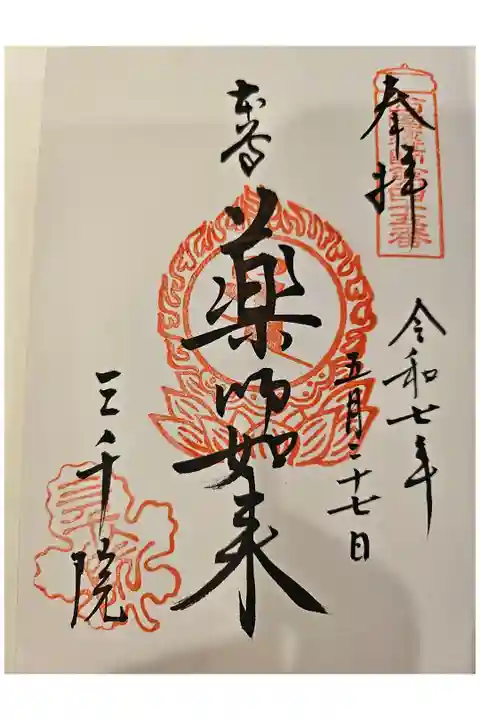 奉拝
令和七年
五月二十七日
本尊
薬師如来
三千院